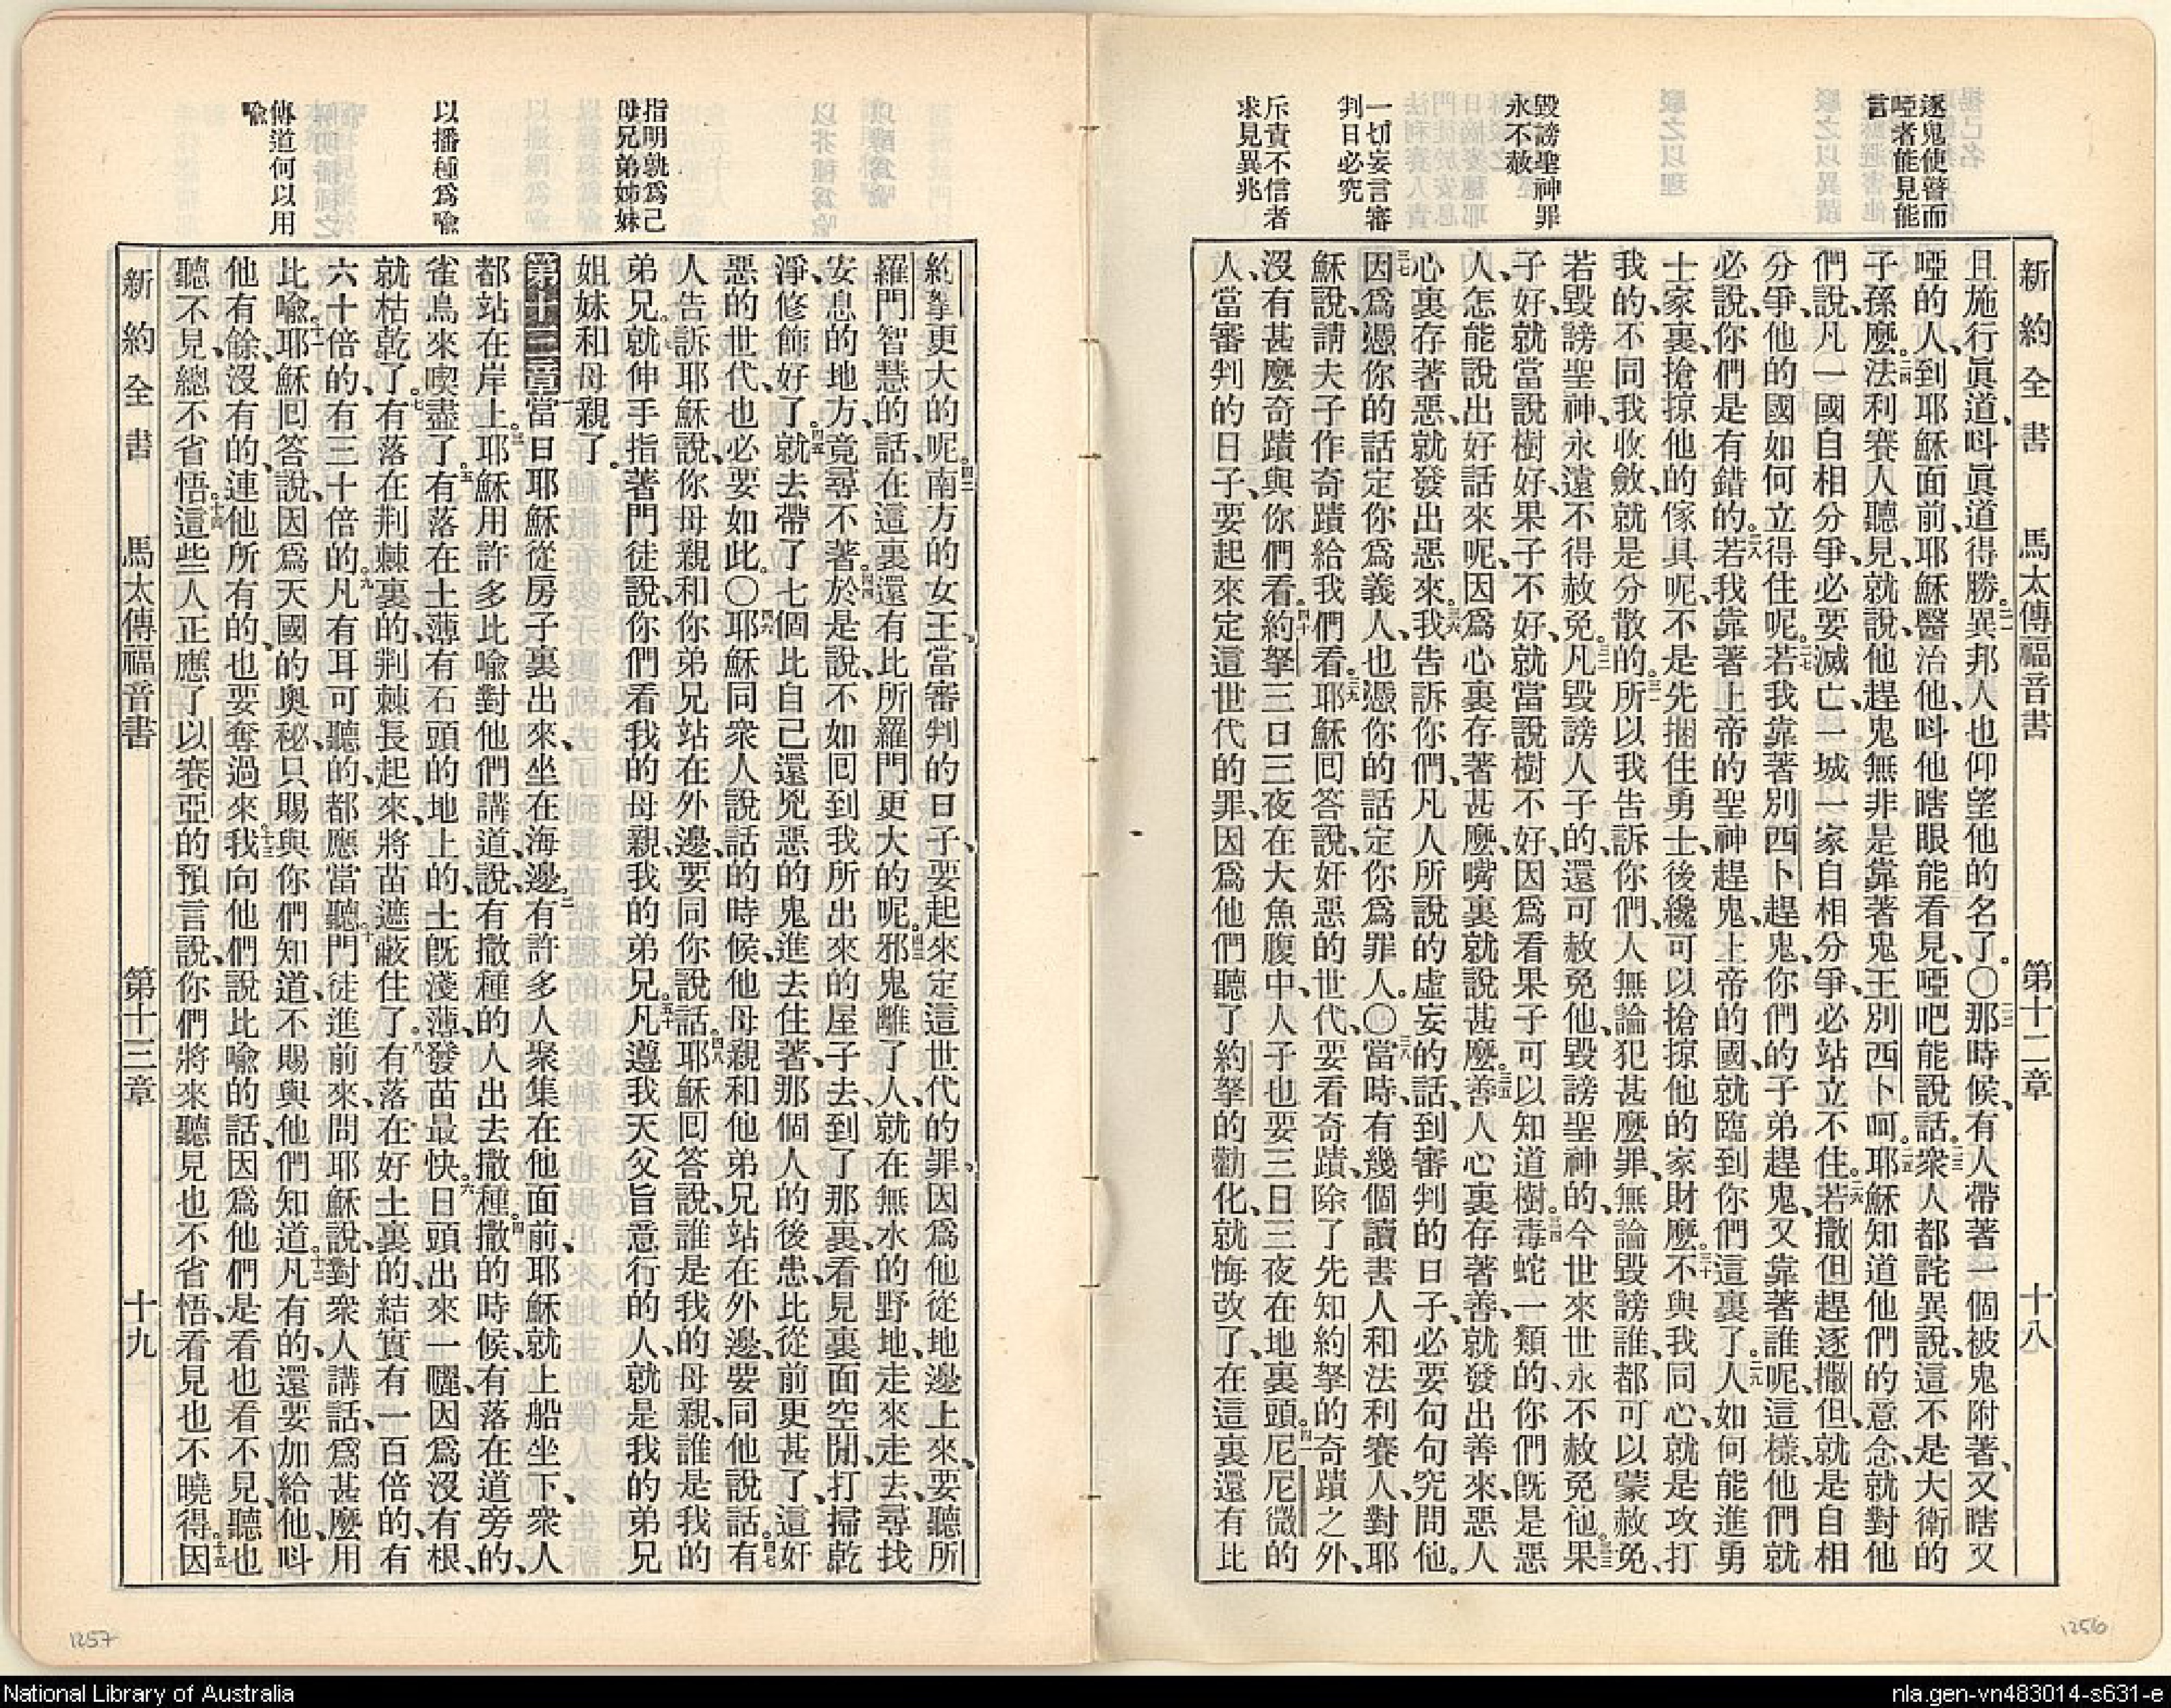 逐鬼使瞽而
啞者能見能
言
毀謗聖神罪
永不赦
一切妄言審
判日必究
斥責不信者
求見異兆
新約全書 馬太傳福音書 第十二章 十八
且施行眞道、呌眞道得勝。二一異邦人也仰望他的名了。〇二二那時候、有人帶著一個被鬼附著、又瞎又
啞的人、到耶穌面前、耶穌醫治他、呌他瞎眼能看見、啞吧能說話。二三衆人都詫異說、這不是大衛的
子孫麼。二四法利賽人聽見、就說、他趕鬼無非是靠著鬼王別西卜呵。二五耶穌知道他們的意念、就對他
們說、凡一國自相分爭、必要滅亡、一城一家自相分爭、必站立不住。二六若撒但趕逐撒但、就是自相
分爭、他的國如何立得住呢。二七若我靠著別西卜趕鬼、你們的子弟趕鬼、又靠著誰呢、這樣、他們就
必說、你們是有錯的。二八若我靠著上帝的聖神趕鬼、上帝的國、就臨到你們這裏了。二九人如何能進勇
士家裏、搶掠他的傢具呢、不是先捆住勇士、後纔可以搶掠他的家財麼。三十不與我同心、就是攻打
我的、不同我收斂、就是分散的。三一所以我告訴你們、人無論犯甚麼罪、無論毀謗誰、都可以蒙赦免、
若毀謗聖神、永遠不得赦免。三二凡毀謗人子的、還可赦免他、毀謗聖神的、今世來世永不赦免他。三三果
子好、就當說樹好、果子不好、就當說樹不好、因爲看果子可以知道樹。三四毒蛇一類的、你們旣是惡
人、怎能說出好話來呢、因爲心裏存著甚麼、嘴裏就說甚麼。三五善人心裏存著善、就發出善來、惡人
心裏存著惡、就發出惡來。三六我告訴你們、凡人所說的虛妄的話、到審判的日子、必要句句究問他。
三七因爲憑你的話定你爲義人、也憑你的話定你爲罪人。〇三八當時、有幾個讀書人和法利賽人、對耶
穌說、請夫子作奇蹟給我們看。三九耶穌回答說、奸惡的世代、要看奇蹟、除了先知約拏的奇蹟之外、
沒有甚麼奇蹟與你們看。四十約拏三日三夜在大魚腹中、人子也要三日三夜在地裏頭。四一尼尼微的
人、當審判的日子、要起來定這世代的罪、因爲他們聽了約拏的勸化、就悔改了、在這裏還有比
1256
指明孰爲己
母兄弟姊妹
以播種爲喻
傳道何以用
喻
約拏更大的呢。四二南方的女王、當審判的日子、要起來定這世代的罪、因爲他從地邊上來、要聽所
羅門智慧的話、在這裏還有比所羅門更大的呢。四三邪鬼離了人、就在無水的野地、走來走去、尋找
安息的地方、竟尋不著。四四於是說、不如回到我所出來的屋子去、到了那裏、看見裏面空閒、打掃乾
淨、修飾好了。四五就去帶了七個比自己還兇惡的鬼、進去住著、那個人的後患、比從前更甚了、這奸
惡的世代、也必要如此。〇四六耶穌同衆人說話的時候、他母親和他弟兄站在外邊、要同他說話。四七有
人告訴耶穌說、你母親和你弟兄站在外邊、要同你說話。四八耶穌回答說、誰是我的母親、誰是我的
弟兄。就伸手指著門徒說、你們看我的母親、我的弟兄。五十凡遵我天父旨意行的人、就是我的弟兄
姐妹和母親了。
第十三章 一當日耶穌從房子裏出來、坐在海邊。二有許多人聚集在他面前、耶穌就上船坐下、衆人
都站在岸上。三耶穌用許多比喻對他們講道、說、有撒種的人出去撒種。四撒的時候、有落在道旁的、
雀鳥來喫盡了。五有落在土薄有石頭的地上的、土旣淺薄、發苗最快。六日頭出來一曬、因爲沒有根、
就枯乾了。七有落在荆棘裏的、荆棘長起來、將苗遮蔽住了。八有落在好土裏的、結實有一百倍的、有
六十倍的、有三十倍的。九凡有耳可聽的、都應當聽。十門徒進前來、問耶穌說、對衆人講話、爲甚麼用
比喻。十一耶穌回答說、因爲天國的奧秘、只賜與你們知道、不賜與他們知道。十二凡有的、還要加給他、呌
他有餘、沒有的、連他所有的、也要奪過來。十三我向他們說比喻的話、因爲他們是看也看不見、聽也
聽不見、總不省悟。十四這些人正應了以賽亞的預言說、你們將來聽見也不省悟、看見也不曉得。十五因
新約全書 馬太傳福音書 第十三章 十九
1257
National Library of Australia
nla.gen-vn483014-s631-e